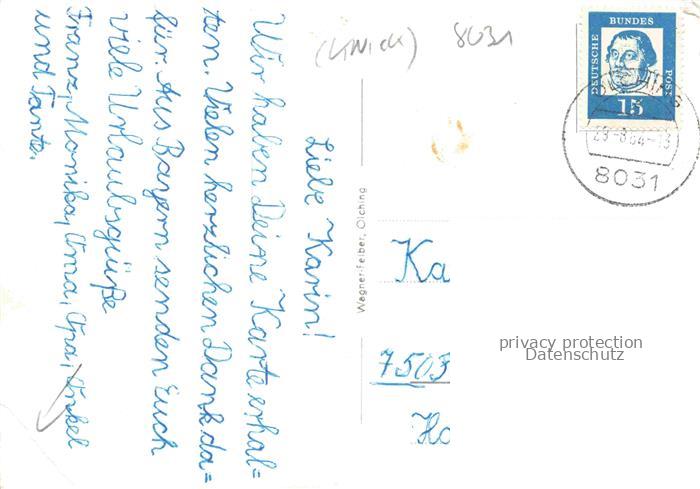 Liebe Karin!
Wir haben Deine Karte erhal=
ten. Vielen herzlichen Dank da=
für. Aus Bayern senden Euch
viele Urlaubsgüße
Franz, Monika, Oma, Opa, Onkel
und Tante.
8031
DEUTSCHE
BUNDES
POST
15
OLCHING
29-8.64-13
8031
Wagner-Felber, Olching
Ka
7503
Ho
privacy protection
Datenschutz